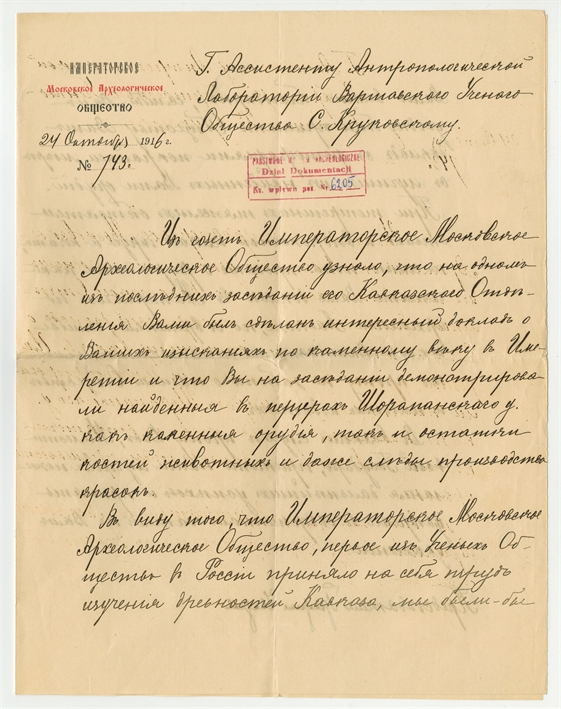 ИМПЕРАТОРСКОЕ
Московское Археологическое
ОБЩЕСТВО
24 Октября 1916 г.
№ 743.
Г. Ассистенту Антропологической
Лабораторіи Варшавскаго Ученаго
Общества С. Круковскому.
PAŃSTWOWE ARCHEOLOGICZNE
Dział Dokumentacji
Nr. wpływu 6205
Изъ газетъ Императорское Московское
Археологическое Общество узнало, что на одномъ
изъ послѣднихъ засѣданій его Кавказскаго Отдѣ-
ленія Вами былъ сдѣланъ интересный докладъ о
Вашихъ изысканіяхъ по каменному вѣку въ Име-
ретіи и что Вы на засѣданіи демонстрирова-
ли найденныя въ пещерахъ Шорапанскаго у.
какъ каменныя орудія, такъ и остатки
костей животныхъ и даже слѣды производства
красокъ.
Въ виду того, что Императорское Московское
Археологическое Общество, первое изъ Ученыхъ Об-
ществъ въ Россіи приняло на себя трудъ
изученія древностей Кавказа мы были-бы